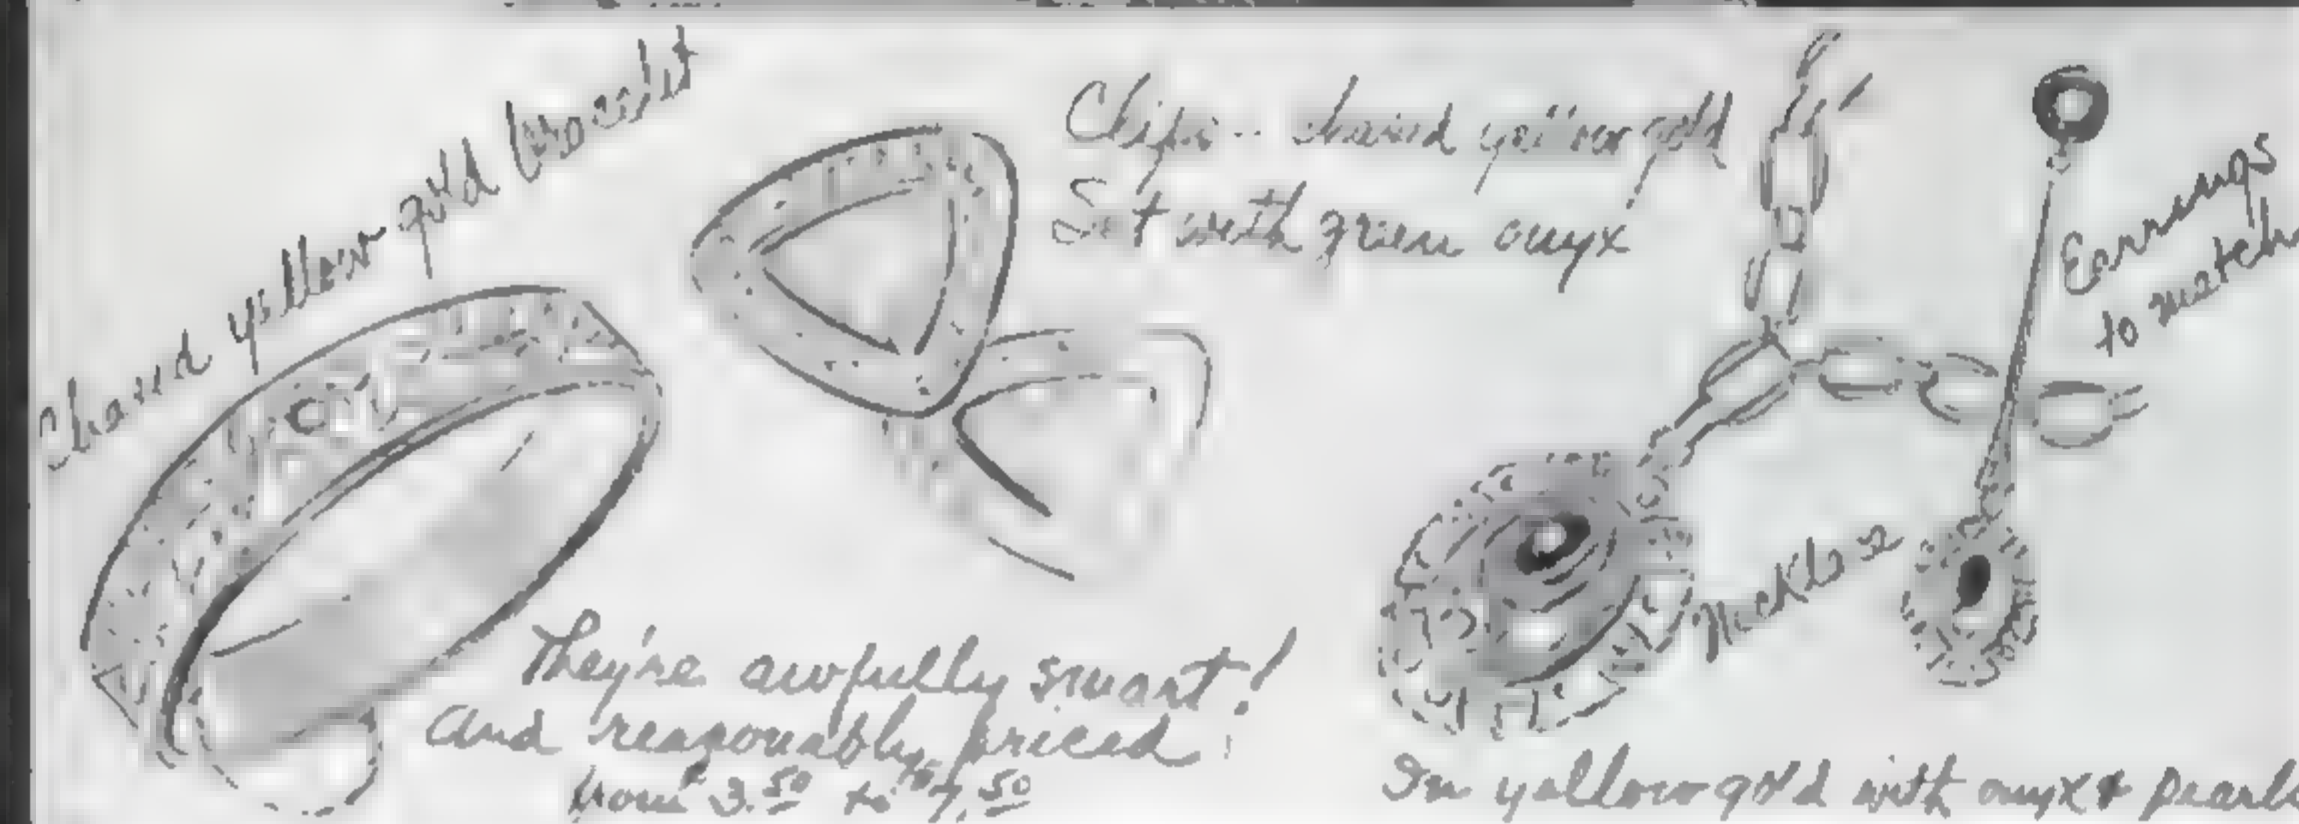 Chased yellow gold bracelet
Clips -- chased yellow gold
Set with green onyx
Earrings
to match
Necklace
They're awfully smart!
and reasonably priced!
from $3.50 to $7.50
In yellow gold with onyx & pearls